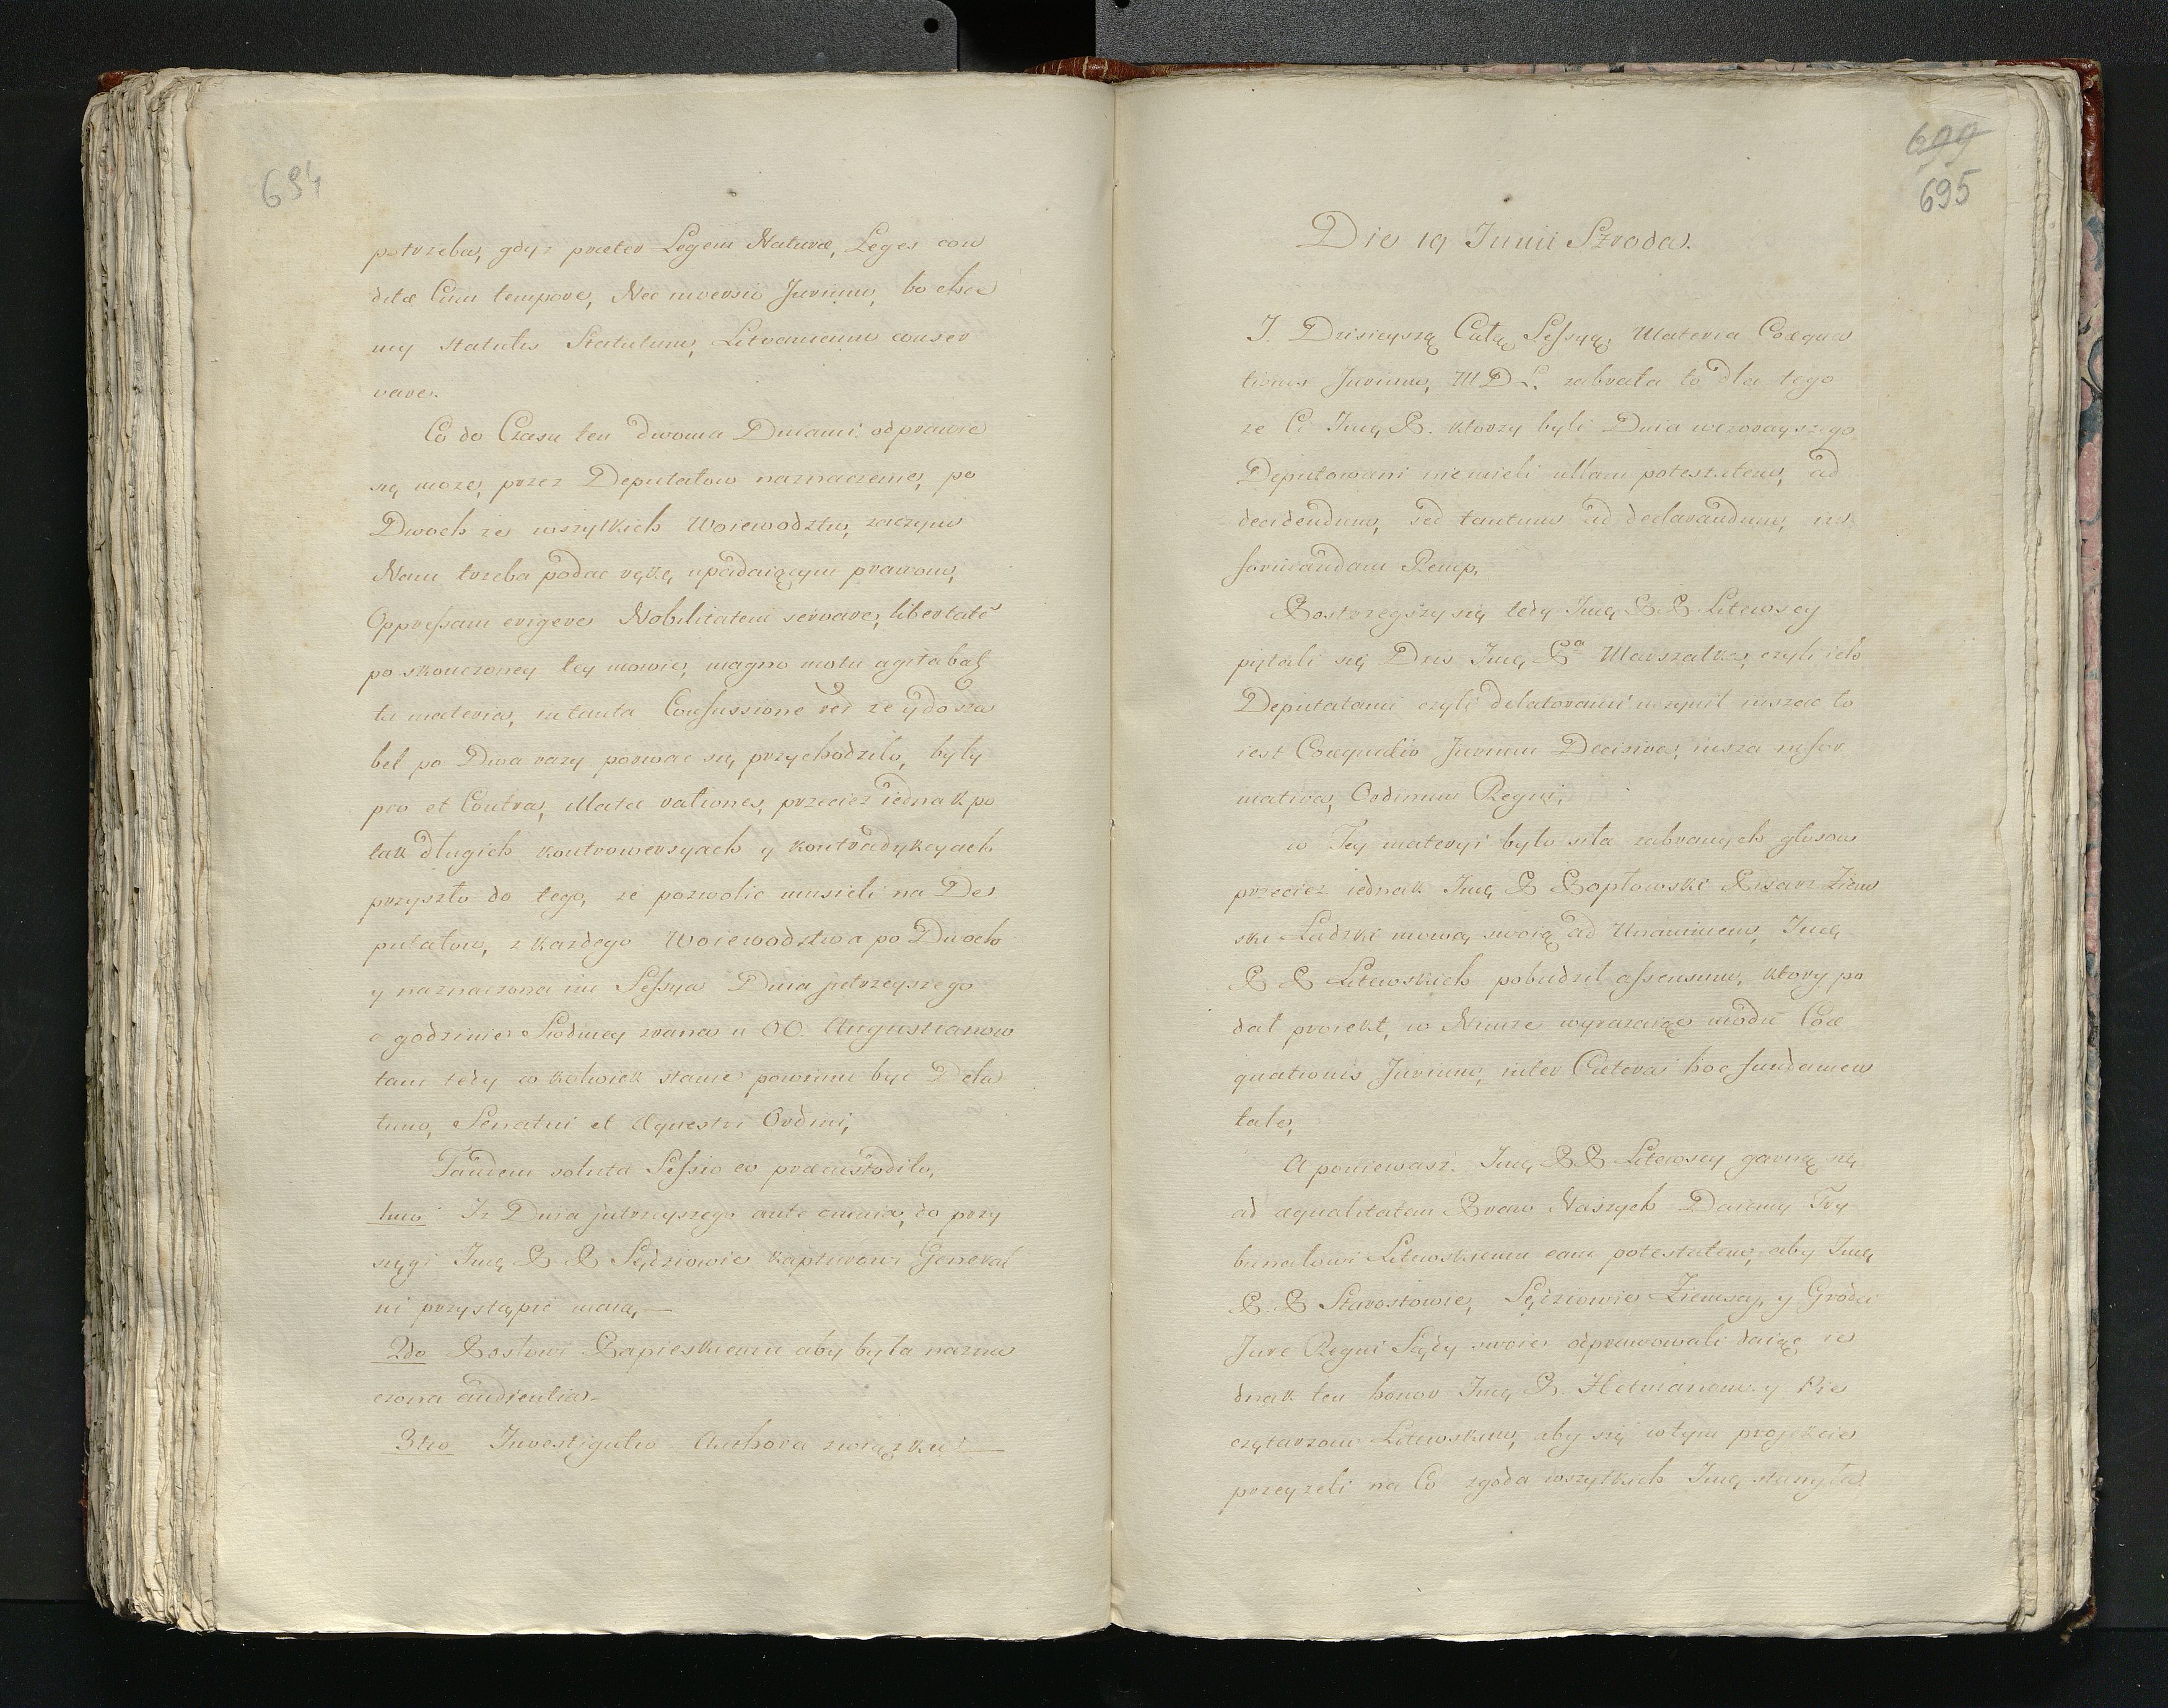 694
potrzeba, gdyz præter Legem Naturæ, Leges con
ditæ Cum tempore, Nec inversio Jurium, bo chce
my statutis Statutum, Litvanicum conser
vare.
Co do Czasu ten dwoma Dniami odprawic
się moze, przez Deputatow naznaczenie, po
Dwoch ze wszytkich Woiewodztw, zaczym
Nam trzeba podac rękę, upadaiącym prawom,
Oppressam erigere Nobilitatem servare, libertatẽ
po skonczoney tey mowie, magno motu agitabat
ta materia, in tanta Confussione rei ze y do sza
bel po Dwa razy porwac się przychodziło, były
pro et Contra, Multæ rationes, przeciez iednak po
tak długich kontrowersyach y kontradykcyach
przyszło do tego, ze pozwolic musieli na De
putatow, z kazdego Woiewodztwa po Dwoch
y naznaczona im Sessya Dnia jutrzeyszego
o godzinie Siodmey zrana u OO. Augustianow
tam tedy w kolwiek stanie powinno byc Dela
tum, Senatui et Equestri Ordini,
Tandem soluta Sessio eo præcustodito,
1mo Iz Dnia jutrzeyszego ante omnia, do przy
sięgi Imę P P Sędziowie kapturowi General
ni przystąpic maią,
2do Posłowi Papieskiemu aby była nazna
czona audientia
3tio Investigatio Authora związku
699
695
Die 19 Junii Szroda.
J. Dzisieyszą Całą Sessyą, Materia Coæqua
tionis Jurium, M D L. zabrała to dla tego
ze Ci Imę P. ktorzy byli Dnia wczorayszego
Deputowani nie mieli ullam potestatem, ad
decidendum, sed tantum ad declarandum, in
formandam Remp.
Postrzegszy się tedy Imę P. P Litewscy
pytali się Dzis Imę Pa Marszałka, czyli ich
Deputatami czyli delatorami uczynił insza to
iest Coæquatio Jurium Decisiva, insza infor
mativa, Ordinum Regni,
w Tey materyi było siła zabranych głosow
przeciez iednak Imę P Popłowski Pisarz Ziem
ski Łudzki mową swoią ad Unanimem, Imę
P P Litewskich pobudził assensum, ktory po
dał proiekt, w Nimze wyrazaiąc modũ Coæ
quationis Jurium, inter Cætera hoc fundamen
tale,
A poniewasz Imę P P Litewscy garną się
ad æqualitatem Praw Naszych Daiemy Try
bunałowi Litewskiemu eam potestatem, aby Imę
P. P Starostowie, Sędziowie Ziemscy, y Grodcí
Jure Regni Sądy swoie odprawowali daiąc ie
dnak ten honor Imę P. Hetmanom y Pie
czętarzom Litewskim, aby się w tym projekcie
przeyzeli na Co zgoda wszytkich Imę stanęła